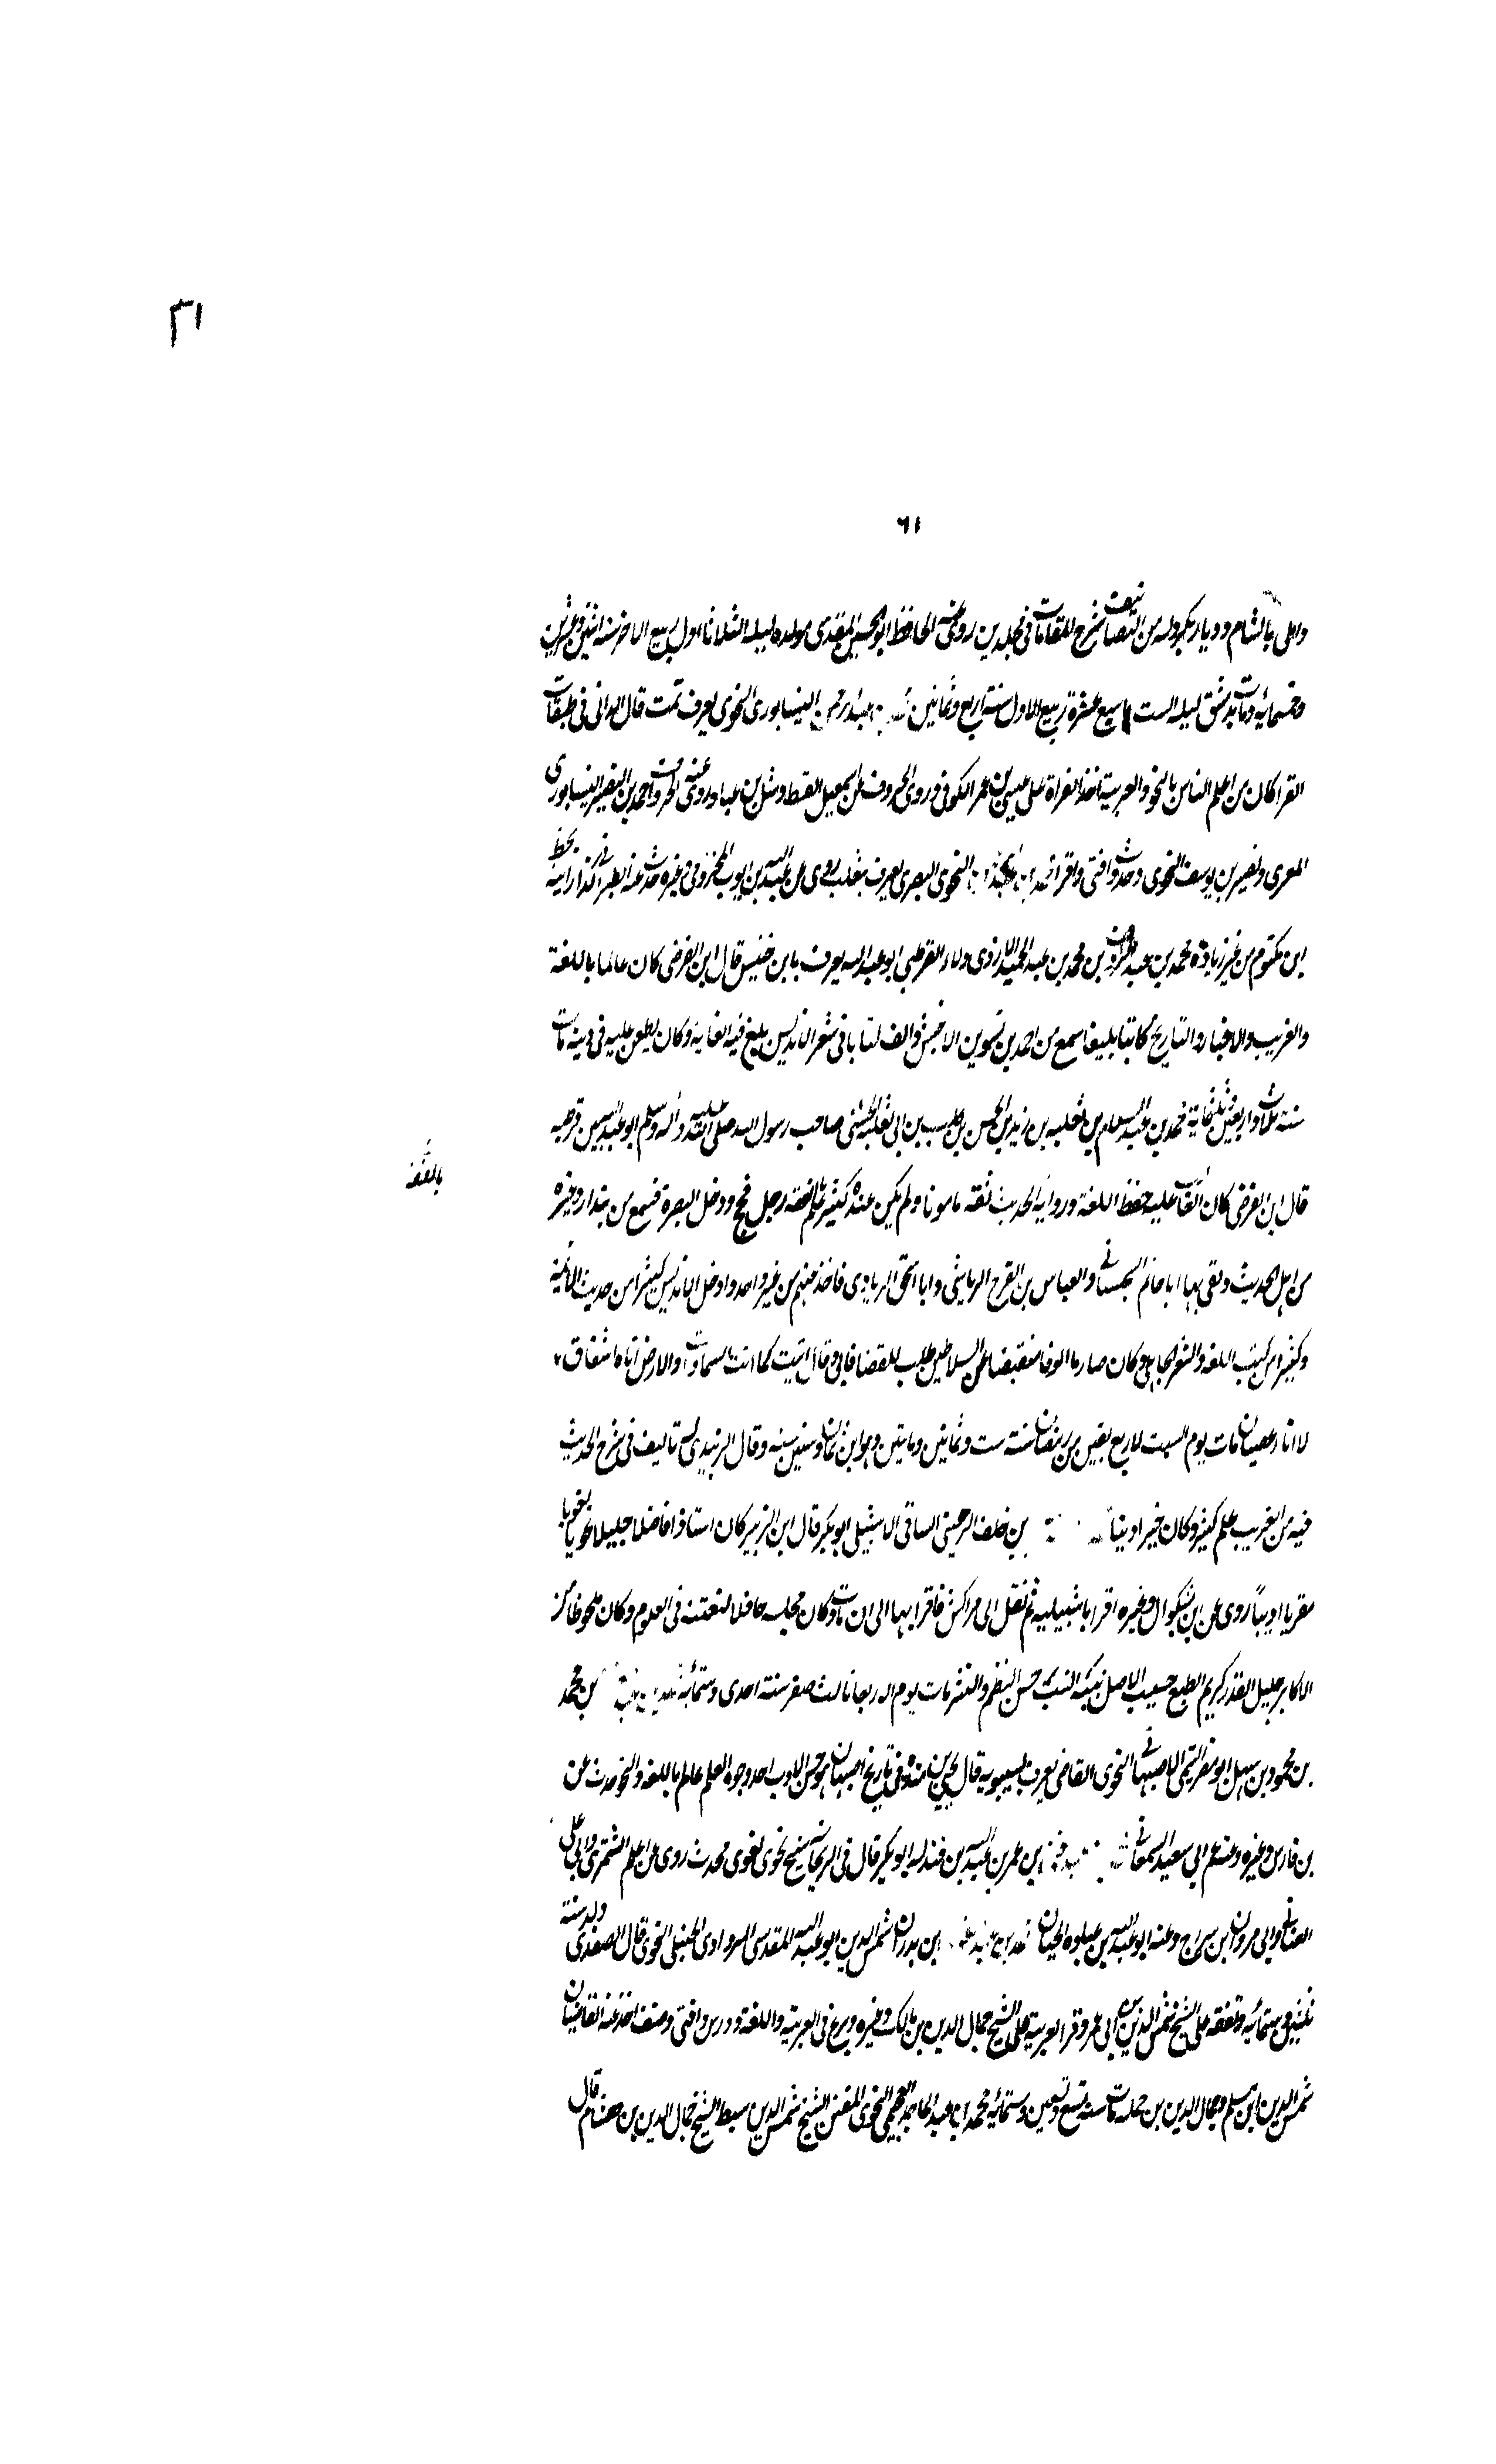 ٣١
٦١
واملى بالشام وديار بكر وله من التصانيف شرح المقامات في مجلدين روى عنه الحافظ ابو الحسين المقدسى مولده ليلة الثلاثا اول ربيع الاخر سنة اثنين وعشرين
وخمسمائة ومات بدمشق ليلة السبت سابع عشرة ربيع الاول سنة اربع وثمانين محمد بن عبد الرحمن النيسابورى النحوى يعرف بمت قال الدانى فى طبقات
القرا كان من اعلم الناس بالنحو والعربية اخذ القراة على عيسى بن عمر الكوفى وروى الحروف عن اسمعيل القسط وشبل بن عباد وروى عنه الحروف احمد بن النضير النيسابورى
المعرى ونصير بن يوسف النحوى وحدث وافتى واقرا محمد بن النحوى البصرى يعرف بثعلب روى عن عبد الله بن ايوب المخزومى وغيره حدث عنه الطبرانى كذا رايته بخط
ابن مكتوم من غير زيادة محمد بن عبد الرؤف بن محمد بن عبد الحميد الازدى ولاء القرطبى ابو عبد الله يعرف بابن خنيس قال ابن الفرضى كان عالما باللغة
والغريب والاخبار والتاريخ كاتبا بليغا سمع من احمد بن بشر بن الاغبش والف كتابا فى شعر الاندلس بلغ فيه الغاية وكان يطعن عليه فى دينه مات
سنة ثلاث واربعين وثلثماية محمد بن عبد السلام بن ثعلبه بن زيد بن الحسن بن كليب بن ابى ثعلبة الخشنى صاحب رسول الله صلى الله عليه واله وسلم ابو عبد الله من قرطبه
قال ابن الفرضى كان الغالب عليه حفظ اللغة ورواية الحديث ثقه مامونا ولم يكن عنده كثير علم بالفقه رحل فحج ودخل البصرة فسمع من بندار وغيره
بالفقه
من اهل الحديث ولقى بها ابا حاتم السجستانى والعباس بن الفرج الرياشى وابا اسحق الزيادى فاخذ عنهم من غير واحد وادخل الاندلس كثيرا من حديث الائمة
وكثيرا من كتب اللغه والشعر الجاهلى وكان صارما انوفا منقبضا عن السلاطين طلب للقضا فابى وقال ابيت كما ابت السماوات والارض اباه اشفاق
لا ابا عصيان مات يوم السبت لاربع بقين من رمضان سنة ست وثمانين ومايتين وهو ابن ثمان وستين سنه وقال الزبيدى له تاليف فى شرح الحديث
فيه من الغريب علم كثير وكان خيرا دينا بن خلف الرعينى الساقى الاشبيلى ابو بكر قال ابن الزبير كان استاذا فاضلا جليلا نحويا لغويا
مقريا اديبا روى عن ابن بشكوال وغيره اقرا باشبيليه ثم نقل الى مراكش فاقرا بها الى ان مات وكان مجلسه حافلا لتفننه فى العلوم وكان ملحوظا من
الاكابر جليل القدر كريم الطبع حسيب الاصل نبيه النسب حسن النظم والنثر مات يوم الاربعا ثالث صفر سنة احدى وستمائة بن محمد
بن محمود بن سهيل ابو مضر التيمى الاصبهانى النحوى القاضى يعرف بسيبويه قال يحيى بن منده فى تاريخ اصبهان هو حسن الادب احد وجوه العلم عالم باللغه والنحو حدث عن
بن فارس وغيره وعنه عم ابى سعيد السمعانى بن عمر بن عبد الله بن فندله ابو بكر قال فى الريحانه شيخ نحوى لغوى محدث روى عن اعلم الشنتمرى وابى على
الغسانى وابى مروان ابن سراج وعنه ابو عبد الله بن عبادة الجيان بن بدران شمس الدين ابو عبد الله المقدسى المرداوى الحنبلى النحوى قال الصفدى ولد سنة
ثلثين وستمائه وتفقه على الشيخ شمس الدين بن ابى عمر وقرا العربية على الشيخ جمال الدين بن مالك وغيره وبرع فى العربيه واللغة ودرس وافتى وصنف اخذ عنه القاضيان
شمس الدين ابن مسلم وجمال الدين بن جمله مات سنة تسع وتسعين وستمائه محمد بن عبد الماجد العجيمى النحوى المفنن الشيخ شمس الدين سبط الشيخ جمال الدين بن هشام قال